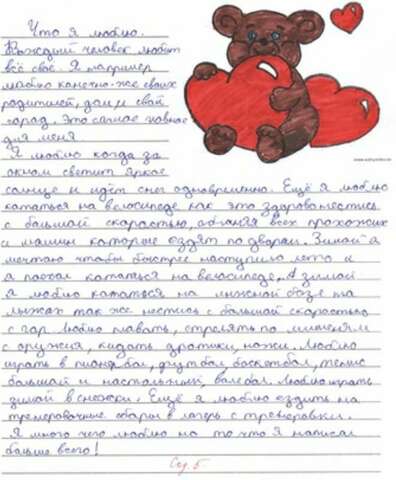 Что я люблю.
Каждый человек любит
всё своё. Я например
люблю конечно-же своих
родителей, дом и свой
город. Это самое главное
для меня
Я люблю когда за
окном светит яркое
www.
солнце и идёт снег одновременно. Ещё я люблю
кататься на велосипеде как это здорово нестись
с большой скоростью, обгоняя всех прохожих
и машин которые ездят по дворам. Зимой я
мечтаю чтобы быстрее наступило лето и
я поехал кататься на велосипеде. А зимой
я люблю кататься на лыжной базе на
лыжах так же нестись с большой скоростью
с гор. Люблю плавать, стрелять по мишеням
с оружия, кидать дротики, ножи. Люблю
играть в пионербол, футбол, баскетбол, тенис
большой и настольный, волебол. Люблю играть
зимой в снежки. Ещё я люблю ездить на
тренеровочные сборы в лагерь с тренеровки.
Я много чего люблю но то что я написал
больше всего!